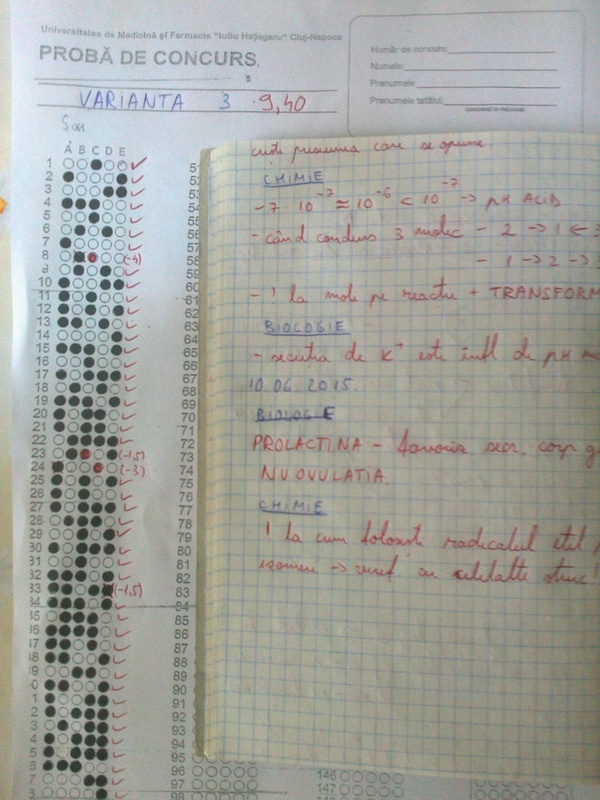 Universitatea de Medicină şi Farmacie "Iuliu Haţieganu" Cluj-Napoca
PROBĂ DE CONCURS
VARIANTA 3 9,40
Număr de concurs:
Numele:
Prenumele:
Prenumele tatălui:
A B C D E
1
2
3
4
5
6
7
8 (-4)
9
10
11
12
13
14
15
16
17
18
19
20
21
22
23 (-1,5)
24 (-3)
25
26
27
28
29
30
31
32
33 (-1,5)
34
35
36
37
38
39
58
59
60
61
62
63
64
65
66
67
68
69
70
71
72
73
74
75
76
77
78
79
80
81
82
83
84
85
86
87
88
89
90
91
92
93
94
95
96
97
98
146
147
presiunea care se opune.
CHIMIE
-7·10⁻⁷ ≈ 10⁻⁶ < 10⁻⁷ → pH ACID
- când condens 3 molec - 2 → 1 ←
- 1 → 2 →
- ! la mole pe reacție + TRANSFORM
BIOLOGIE
- secreția de K⁺ este infl de pH
10.06.2015.
BIOLOGIE
PROLACTINA - secr. corp
NU OVULATIA.
CHIMIE
! la cum folosești radicalul etil
izomeri → cu celelalte